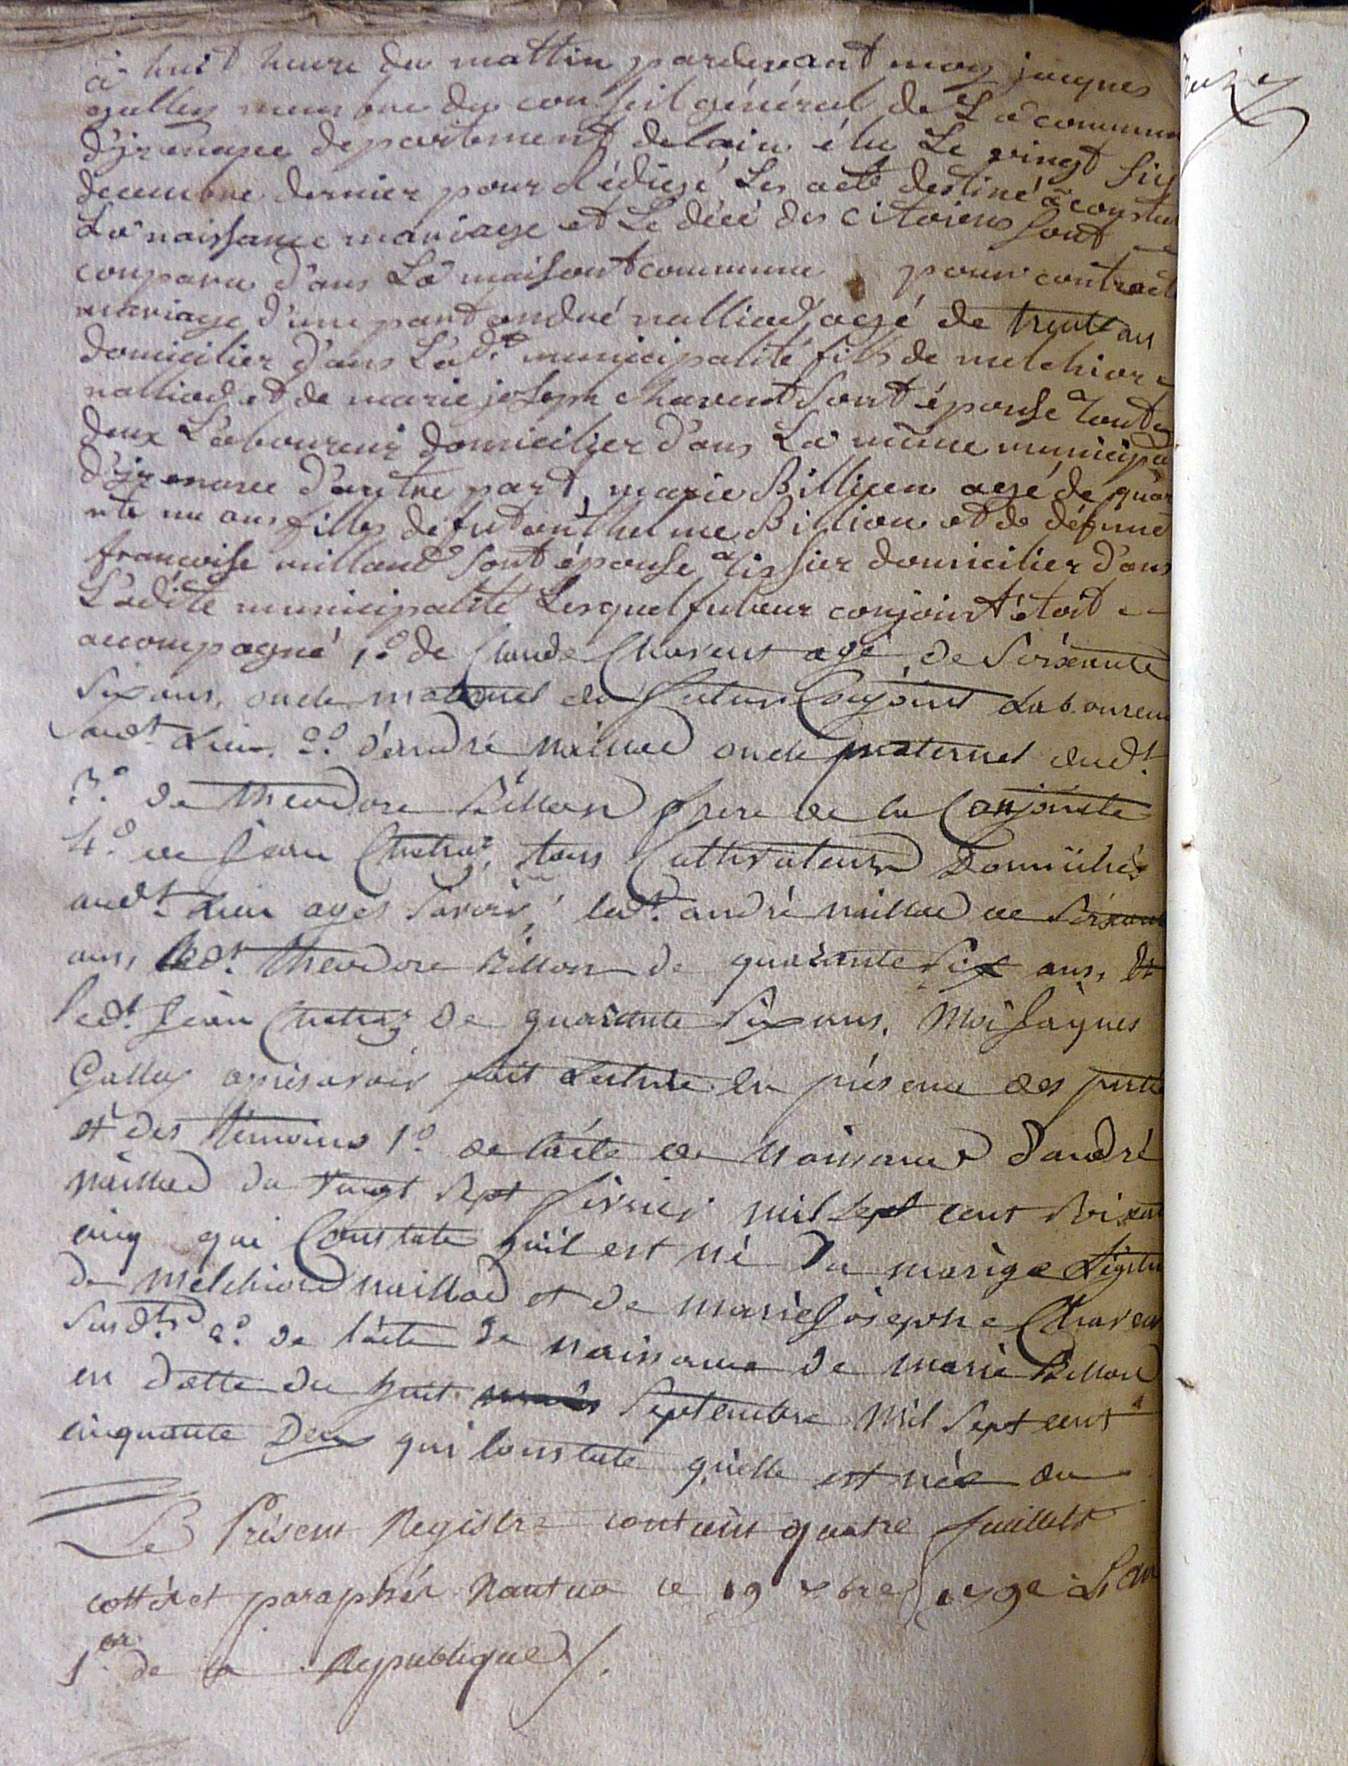 à huit heure du mattin pardevant moy jacques
gallay membre du conseil général de La commun
d'jzenave departement de lain élu Le vingt six
decembre dernier pour rédigé Les acte destiné à constat
La naissance mariage et Le décé des citoiens sont
conparu d'ans La maison commune pour contract
mariage d'une part andré nalliod agé de trente an
domicilier d'ans Lad.te municipalité fils de melchior
nalliod et de marie joseph Chavent sont épouse tout
deux Laboureur domicilier d'ans La même municipa
d'jzenave d'autre part, marie Billion agé de quar
nte un ans fille de fut anthelme Billion et de défunct
francoise milland sont épouse tissier domicilier d'ans
Ladite municipalité Lesquel futeur conjoint étoit
accompagné 1.o de Claude Chavent agé de Soixante
Six ans, oncle maternel du futur Conjoint Laboureur
aud.t Lieu 2.o d'andré naillod oncle paternel dud.t
3.o de théodore Billion frere de la Conjointe
4.o de jean Chatraz, tous Cultivateurs Domiciliés
aud.t Lieu ages savoir led.t andré naillod de Soixant
ans, led.t théodore Billion de quarante six ans, et
led.t jean Chatraz de quarante Six ans. Moi Jaques
Gallay après avoir fait Lecture en présence des partie
et des témoins 1.o de l'acte de Naissance d'andré
naillod du vingt sept février mil sept cent Soixant
cinq qui Constate qu'il est né du mariage Légitim
de Melchior naillod et de marie Josephe Chavent
susd.ts 2.o de l'acte de naissance de marie Billion
en datte du huit Septembre Mil Sept cent
cinquante Deux qui Constate qu'elle est née du
Le Présent Registre contient quatre feuillets
cotté et paraphés Nantua ce 19 xbre 1792 L'an
1.er de la Republique